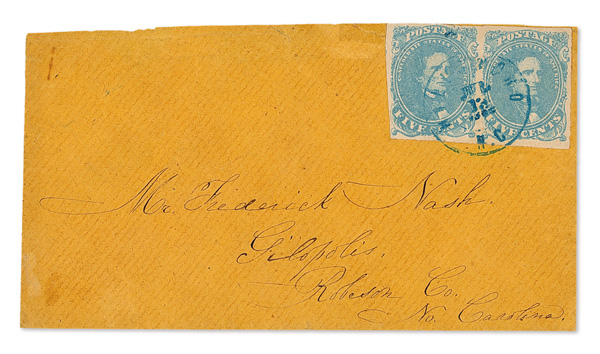 POSTAGE POSTAGE
CONFEDERATE STATES OF AMERICA
FIVE CENTS FIVE CENTS
N.C.
Mr. Frederick Nash.
Gilopolis.
Robeson Co.
No. Carolina.